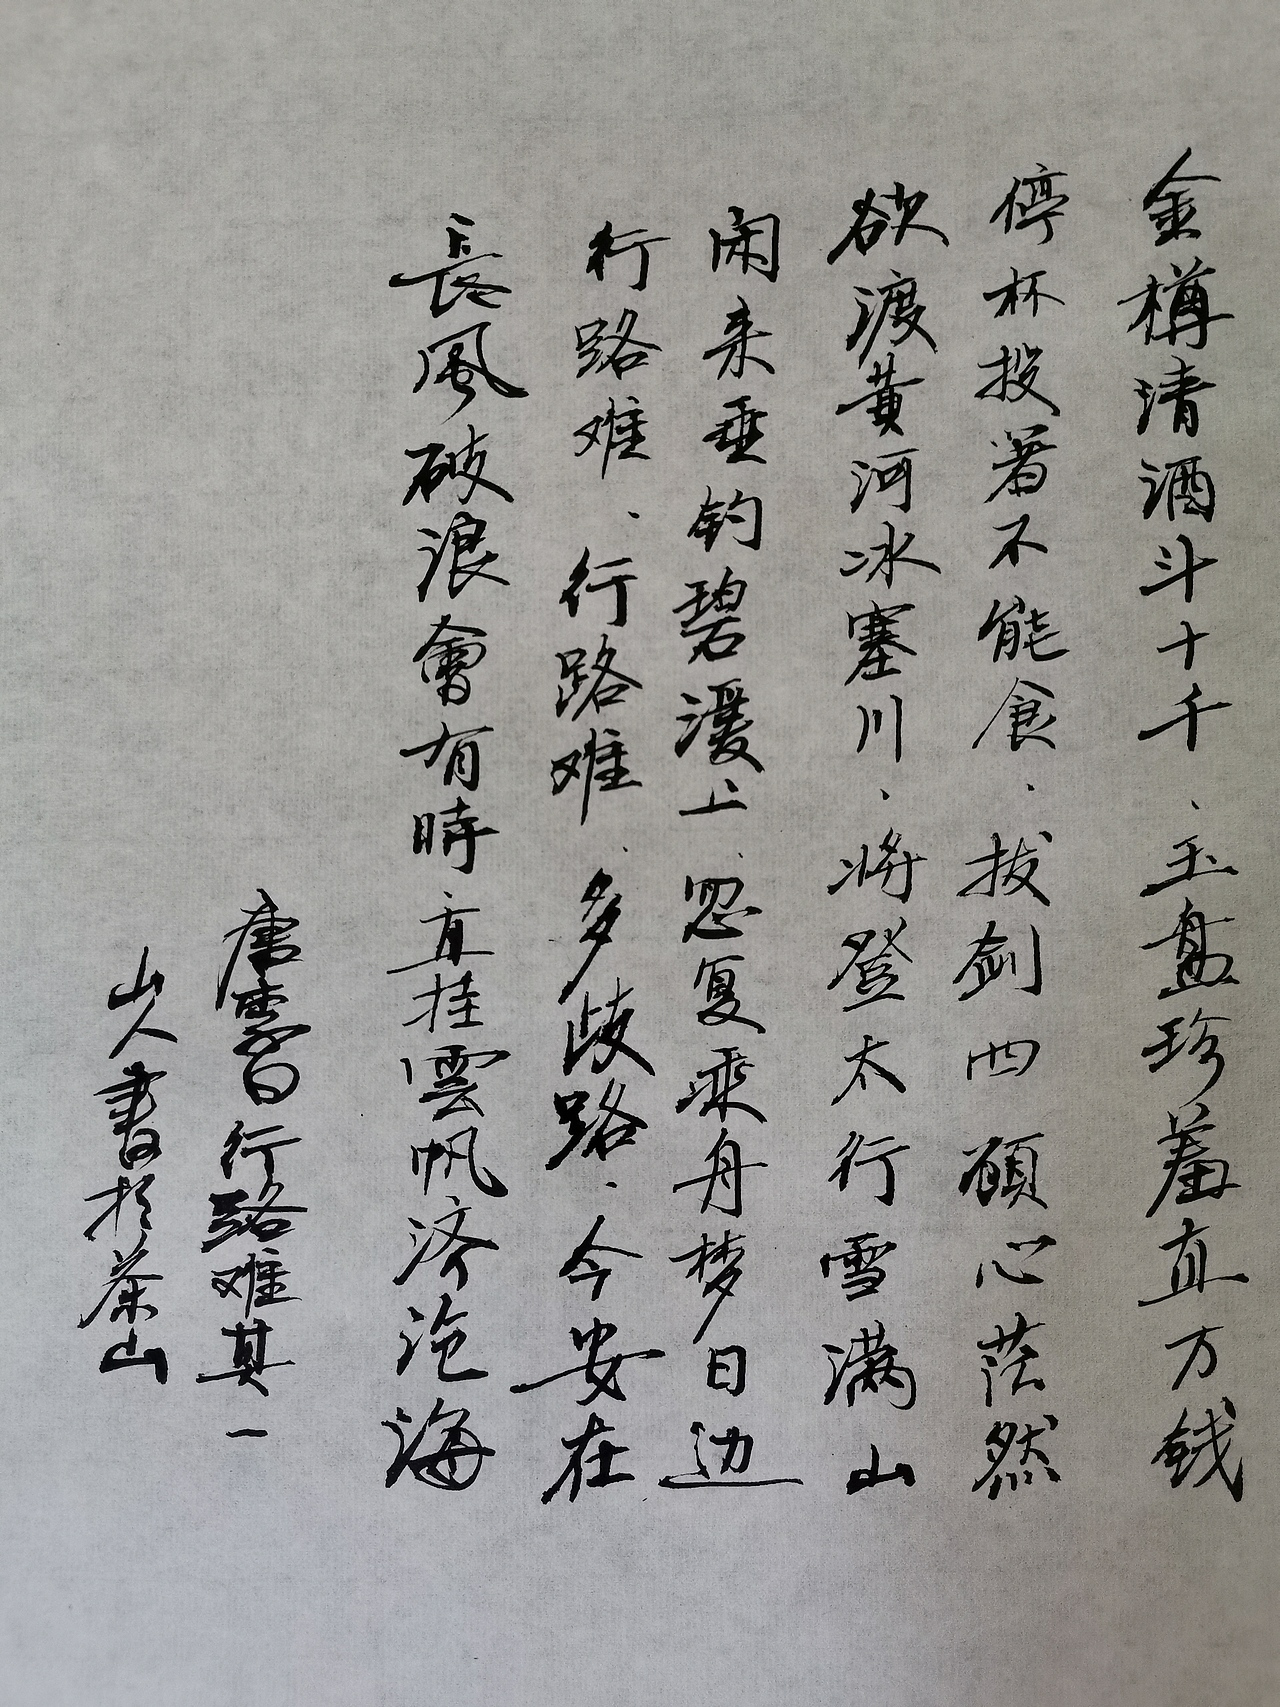 金樽清酒斗十千、玉盘珍羞直万钱
停杯投箸不能食、拔剑四顾心茫然
欲渡黄河冰塞川、将登太行雪满山
闲来垂钓碧溪上、忽复乘舟梦日边
行路难、行路难、多歧路、今安在
長風破浪會有時直挂雲帆济沧海
唐李白行路难其一
山人書於茶山